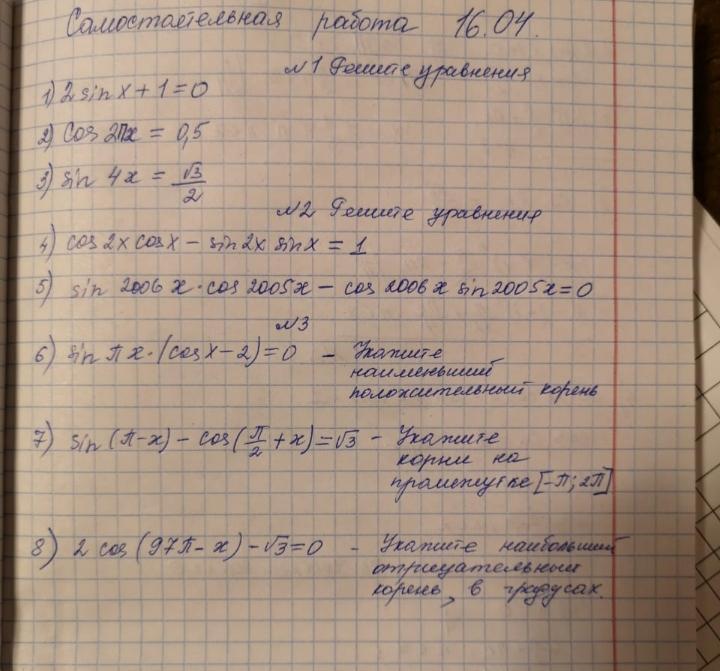 Самостоятельная работа 16.04.
№1 Решите уравнения
1) 2 sin x + 1 = 0
2) cos 2πx = 0,5
3) sin 4x = √3/2
№2 Решите уравнения
4) cos 2x cos x − sin 2x sin x = 1
5) sin 2006 x · cos 2005x − cos 2006 x sin 2005x = 0
№3
6) sin πx · (cos x − 2) = 0 − Укажите
наименьший
положительный корень
7) sin (π − x) − cos (π/2 + x) = √3 − Укажите
корни на
промежутке [−π; 2π]
8) 2 cos (97π − x) − √3 = 0 − Укажите наибольший
отрицательный
корень, в градусах.